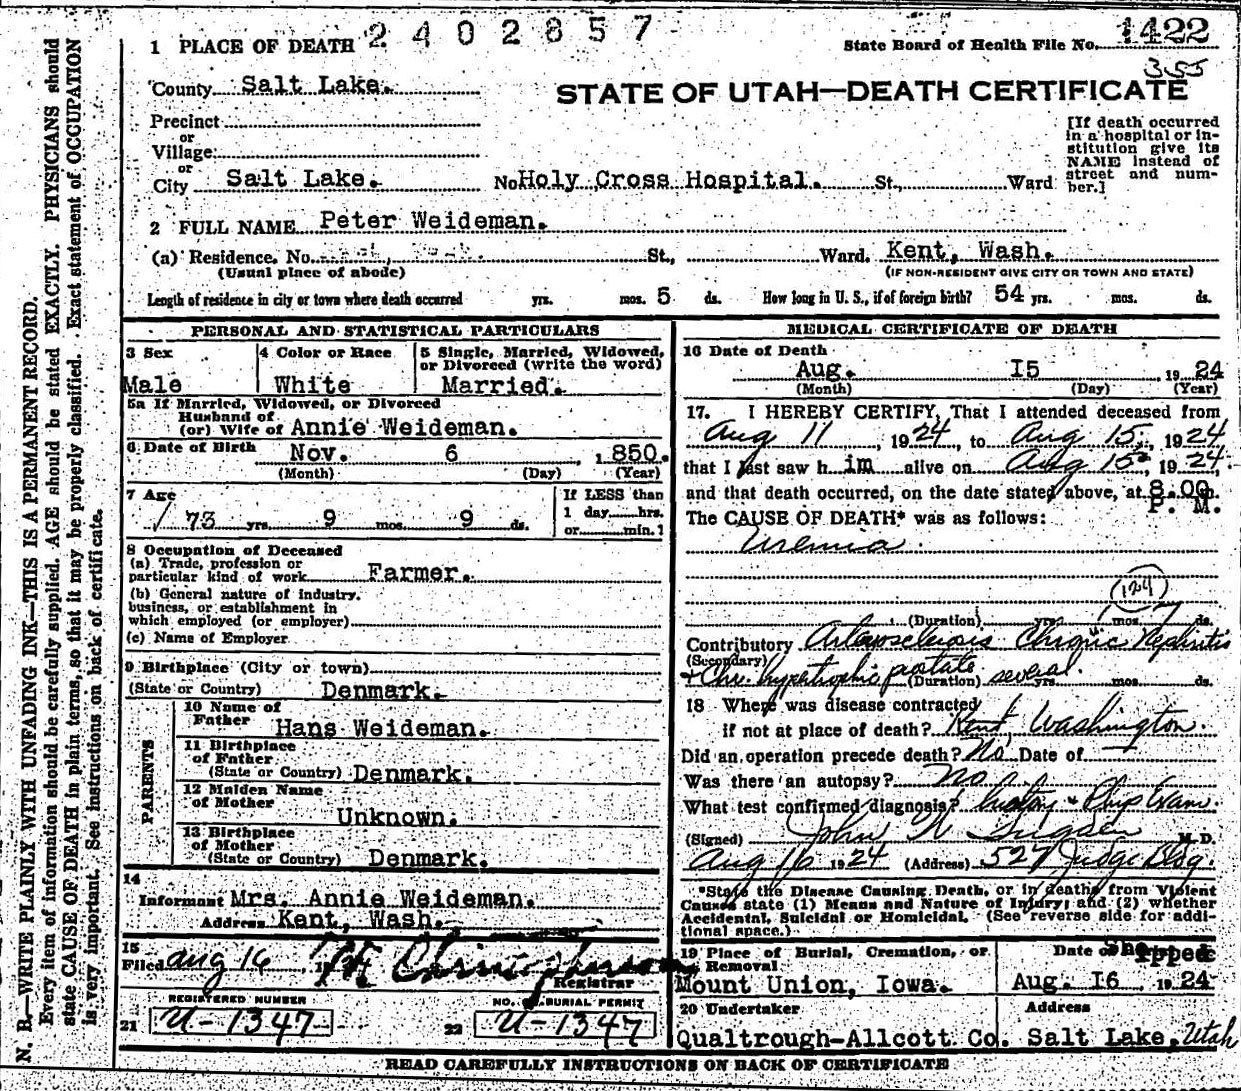 2402857
1 PLACE OF DEATH
State Board of Health File No. 1422
355
County Salt Lake.
STATE OF UTAH—DEATH CERTIFICATE
Precinct
or
Village
or
City Salt Lake. No Holy Cross Hospital. St., Ward
[If death occurred in a hospital or institution give its NAME instead of street and number.]
2 FULL NAME Peter Weideman.
(a) Residence. No. St., Ward. Kent, Wash.
(Usual place of abode) (IF NON-RESIDENT GIVE CITY OR TOWN AND STATE)
Length of residence in city or town where death occurred yrs. mos. 5 ds. How long in U. S., if of foreign birth? 54 yrs. mos. ds.
PERSONAL AND STATISTICAL PARTICULARS
3 Sex 4 Color or Race 5 Single, Married, Widowed, or Divorced (write the word)
Male White Married.
5a If Married, Widowed, or Divorced
Husband of
(or) Wife of Annie Weideman.
6 Date of Birth Nov. 6 1850.
(Month) (Day) (Year)
7 Age If LESS than
73 yrs. 9 mos. 9 ds. 1 day hrs.
or min.
8 Occupation of Deceased
(a) Trade, profession or
particular kind of work Farmer.
(b) General nature of industry,
business, or establishment in
which employed (or employer)
(c) Name of Employer
9 Birthplace (City or town)
(State or Country) Denmark.
PARENTS
10 Name of
Father Hans Weideman.
11 Birthplace
of Father
(State or Country) Denmark.
12 Maiden Name
of Mother
Unknown.
13 Birthplace
of Mother
(State or Country) Denmark.
14
Informant Mrs. Annie Weideman.
Address Kent, Wash.
15
Filed Aug 16, 1
Registrar
REGISTERED NUMBER NO. OF BURIAL PERMIT
21 U-1347 22 U-1347
MEDICAL CERTIFICATE OF DEATH
16 Date of Death
Aug. I5 1924
(Month) (Day) (Year)
17. I HEREBY CERTIFY, That I attended deceased from
Aug 11, 1924, to Aug 15, 1924
that I last saw him alive on Aug 15, 1924
and that death occurred, on the date stated above, at 8.00 m.
P. M.
The CAUSE OF DEATH* was as follows:
Uremia
(129)
(Duration) yrs. mos. ds.
Contributory Chronic Nephritis
(Secondary)
+ Chr. hypertrophic prostate
(Duration) several yrs. mos. ds.
18 Where was disease contracted
if not at place of death? Kent, Washington.
Did an operation precede death? No Date of —
Was there an autopsy? No
What test confirmed diagnosis?
(Signed) John M. D.
Aug 16 1924 (Address) 527 Judge Bldg.
*State the Disease Causing Death, or in deaths from Violent
Causes state (1) Means and Nature of Injury; and (2) whether
Accidental, Suicidal or Homicidal. (See reverse side for addi-
tional space.)
19 Place of Burial, Cremation, or Removal Date of Shipped
Mount Union, Iowa. Aug. I6 1924
20 Undertaker Address
Qualtrough-Allcott Co. Salt Lake, Utah
READ CAREFULLY INSTRUCTIONS ON BACK OF CERTIFICATE
N. B.—WRITE PLAINLY WITH UNFADING INK—THIS IS A PERMANENT RECORD.
Every item of information should be carefully supplied. AGE should be stated EXACTLY. PHYSICIANS should
state CAUSE OF DEATH in plain terms, so that it may be properly classified. Exact statement of OCCUPATION
is very important. See instructions on back of certificate.